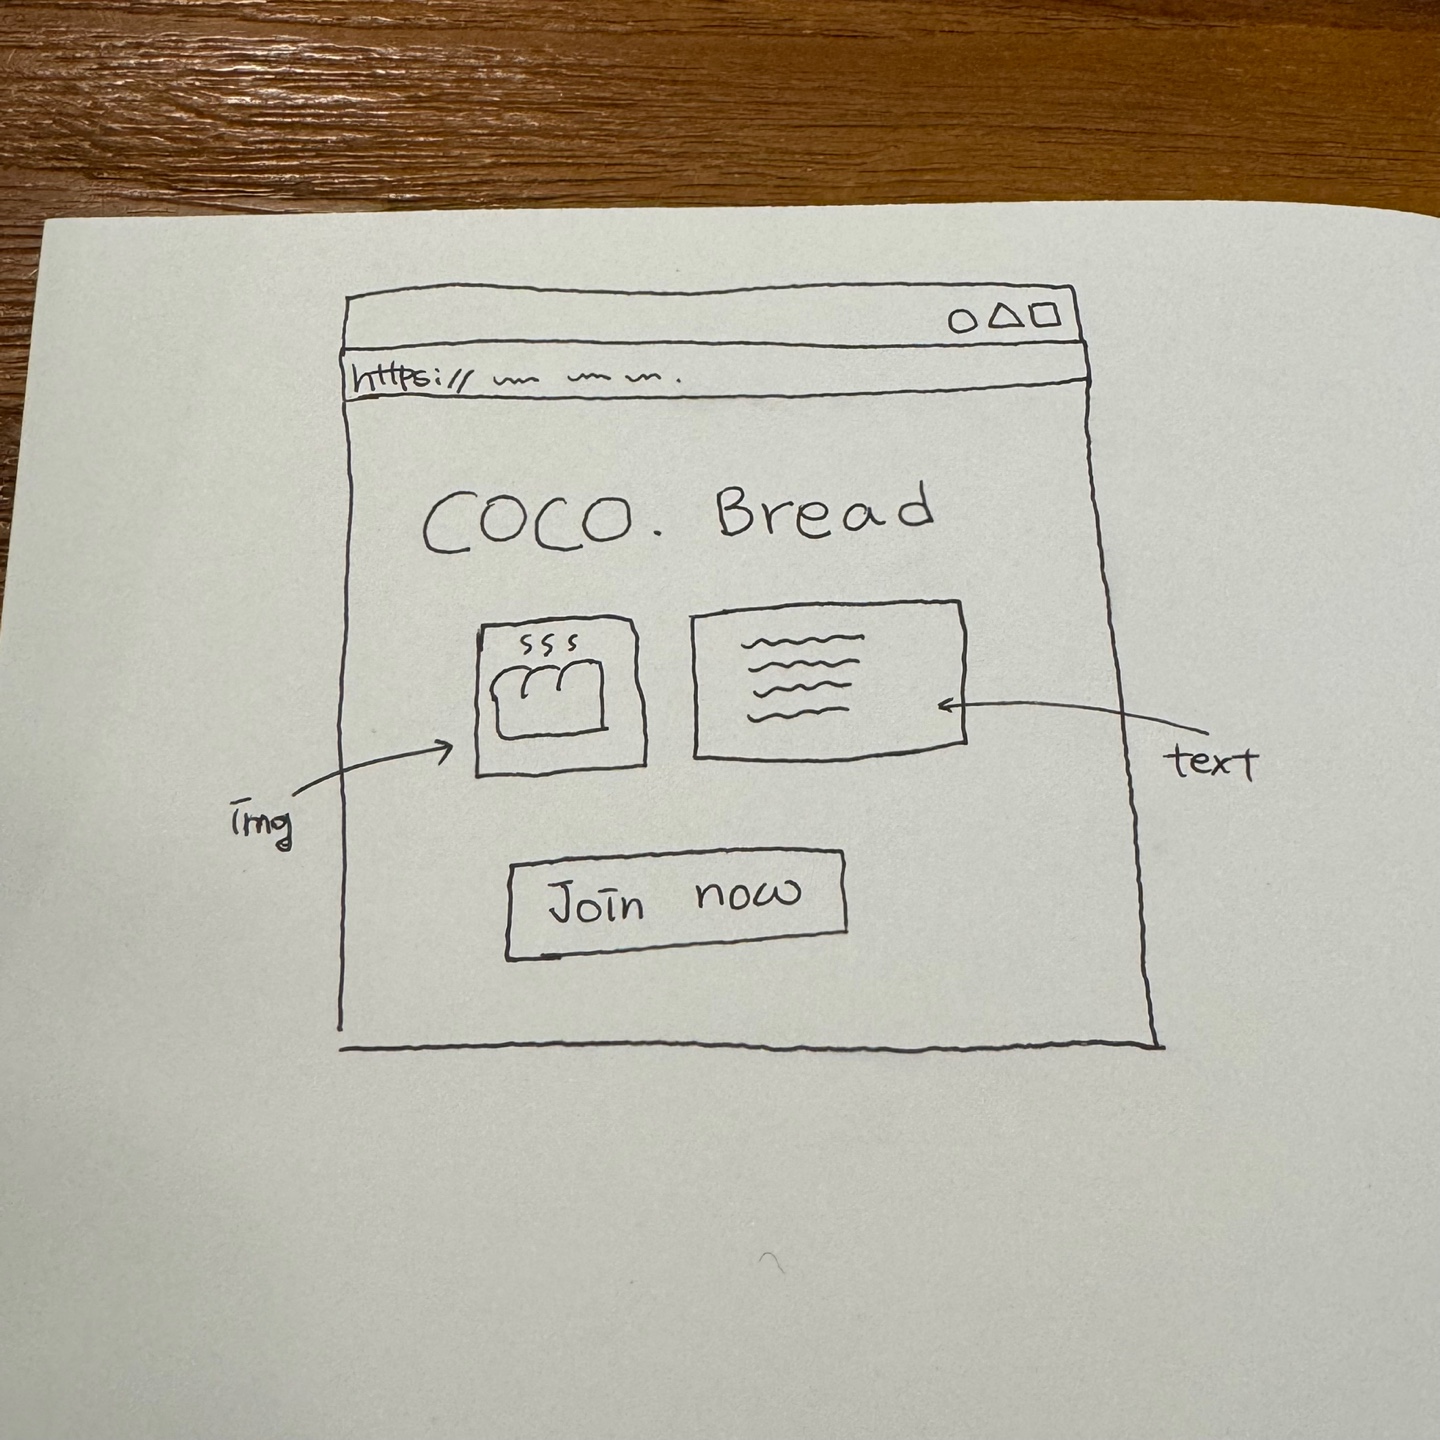 https://
COCO. Bread
img
text
Join now